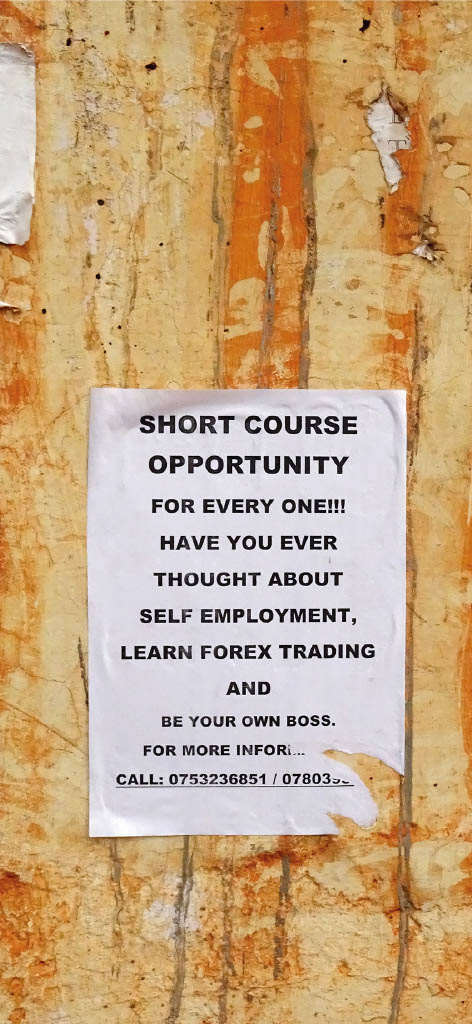 SHORT COURSE
OPPORTUNITY
FOR EVERY ONE!!!
HAVE YOU EVER
THOUGHT ABOUT
SELF EMPLOYMENT,
LEARN FOREX TRADING
AND
BE YOUR OWN BOSS.
FOR MORE
CALL: 0753236851 /